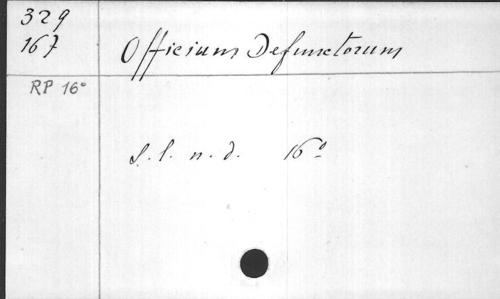 329
167
Officium Defunctorum
RP 16°
S. l. n. d. 16°